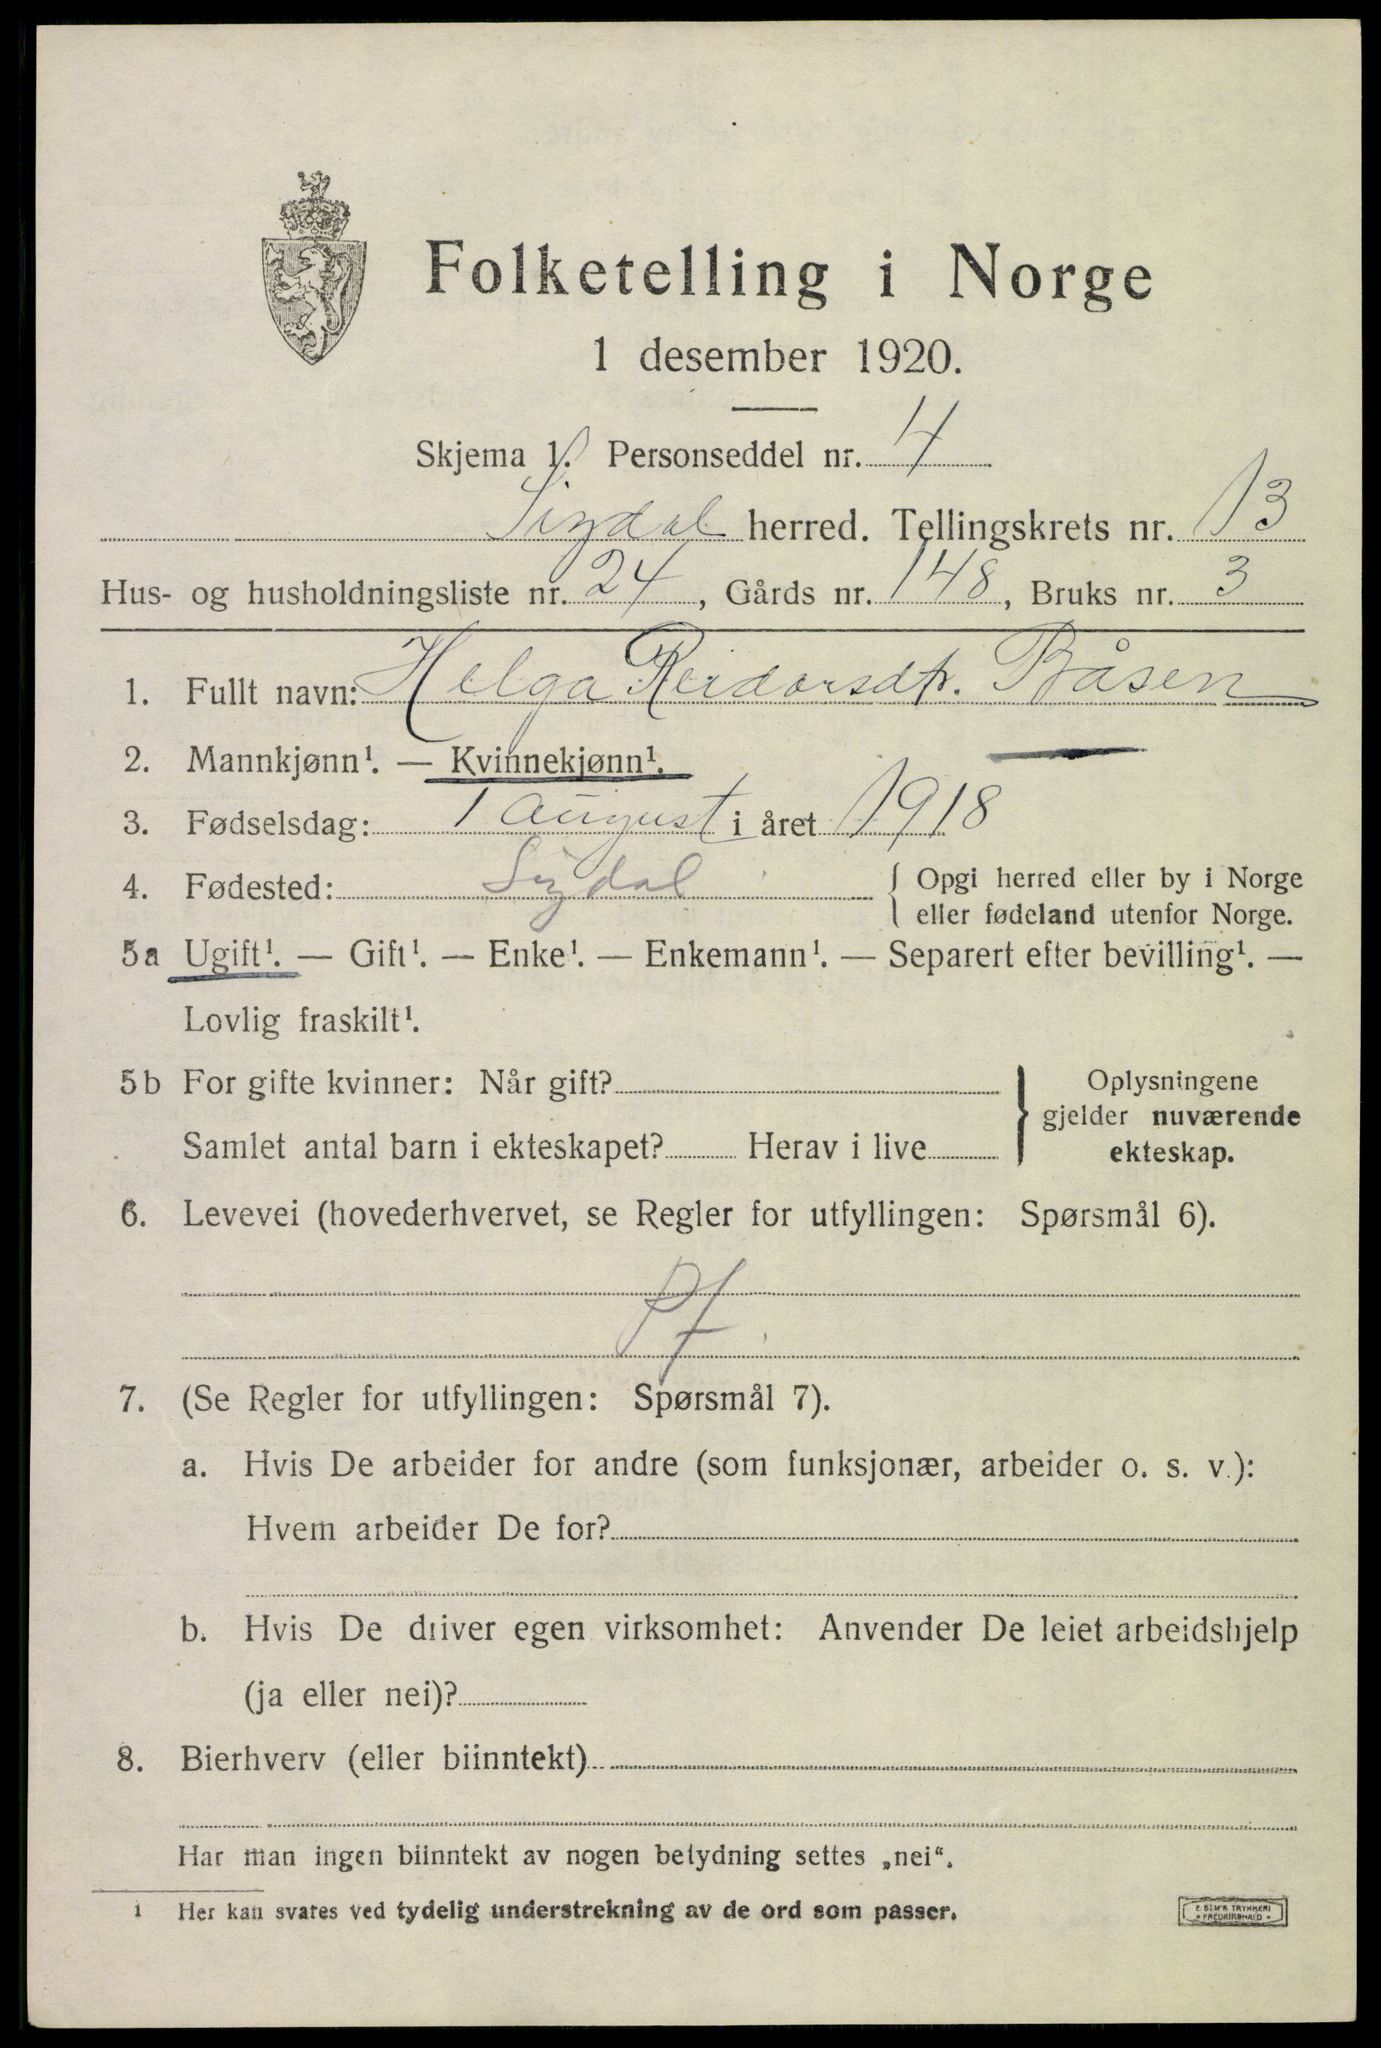 Folketelling i Norge
1 desember 1920.
Skjema 1. Personseddel nr. 4
Sigdal herred. Tellingskrets nr. 13
Hus- og husholdningsliste nr. 24, Gårds nr. 148, Bruks nr. 3
1. Fullt navn: Helga Reidarsdtr. Båsen
2. Mannkjønn¹. — Kvinnekjønn¹.
3. Fødselsdag: 1 august i året 1918
4. Fødested: Sigdal { Opgi herred eller by i Norge
eller fødeland utenfor Norge.
5a Ugift¹. — Gift¹. — Enke¹. — Enkemann¹. — Separert efter bevilling¹. —
Lovlig fraskilt¹.
5b For gifte kvinner: Når gift?
Samlet antal barn i ekteskapet? Herav i live
} Oplysningene
gjelder nuværende
ekteskap.
6. Levevei (hovederhvervet, se Regler for utfyllingen: Spørsmål 6).
Pf.
7. (Se Regler for utfyllingen: Spørsmål 7).
a. Hvis De arbeider for andre (som funksjonær, arbeider o. s. v.):
Hvem arbeider De for?
b. Hvis De driver egen virksomhet: Anvender De leiet arbeidshjelp
(ja eller nei)?
8. Bierhverv (eller biinntekt)
Har man ingen biinntekt av nogen betydning settes „nei“.
1 Her kan svares ved tydelig understrekning av de ord som passer.
E. SEM'S TRYKKERI
• FREDRIKSHALD •